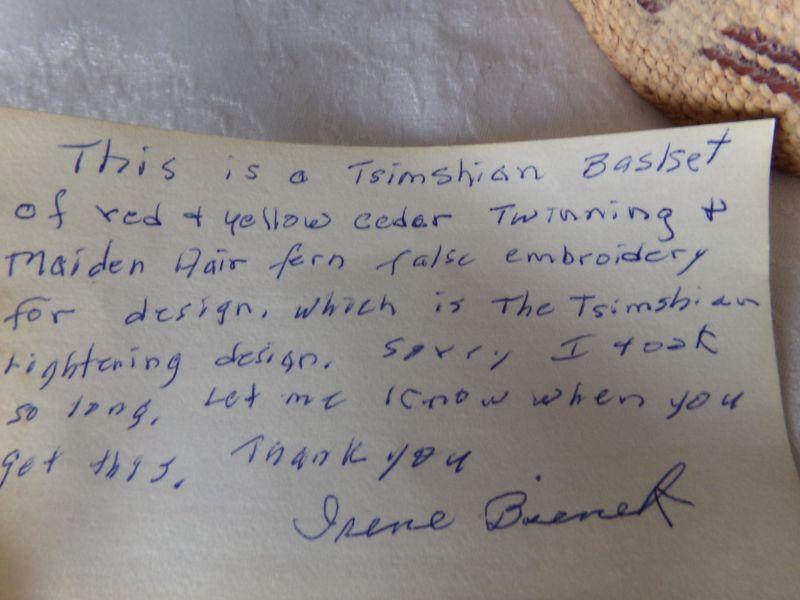 This is a Tsimshian Basket
of red + yellow cedar Twinning +
Maiden Hair fern false embroidery
for design. Which is The Tsimshian
Lightening design. Sorry I took
so long. Let me Know when you
get this. Thank you
Irene Bienek